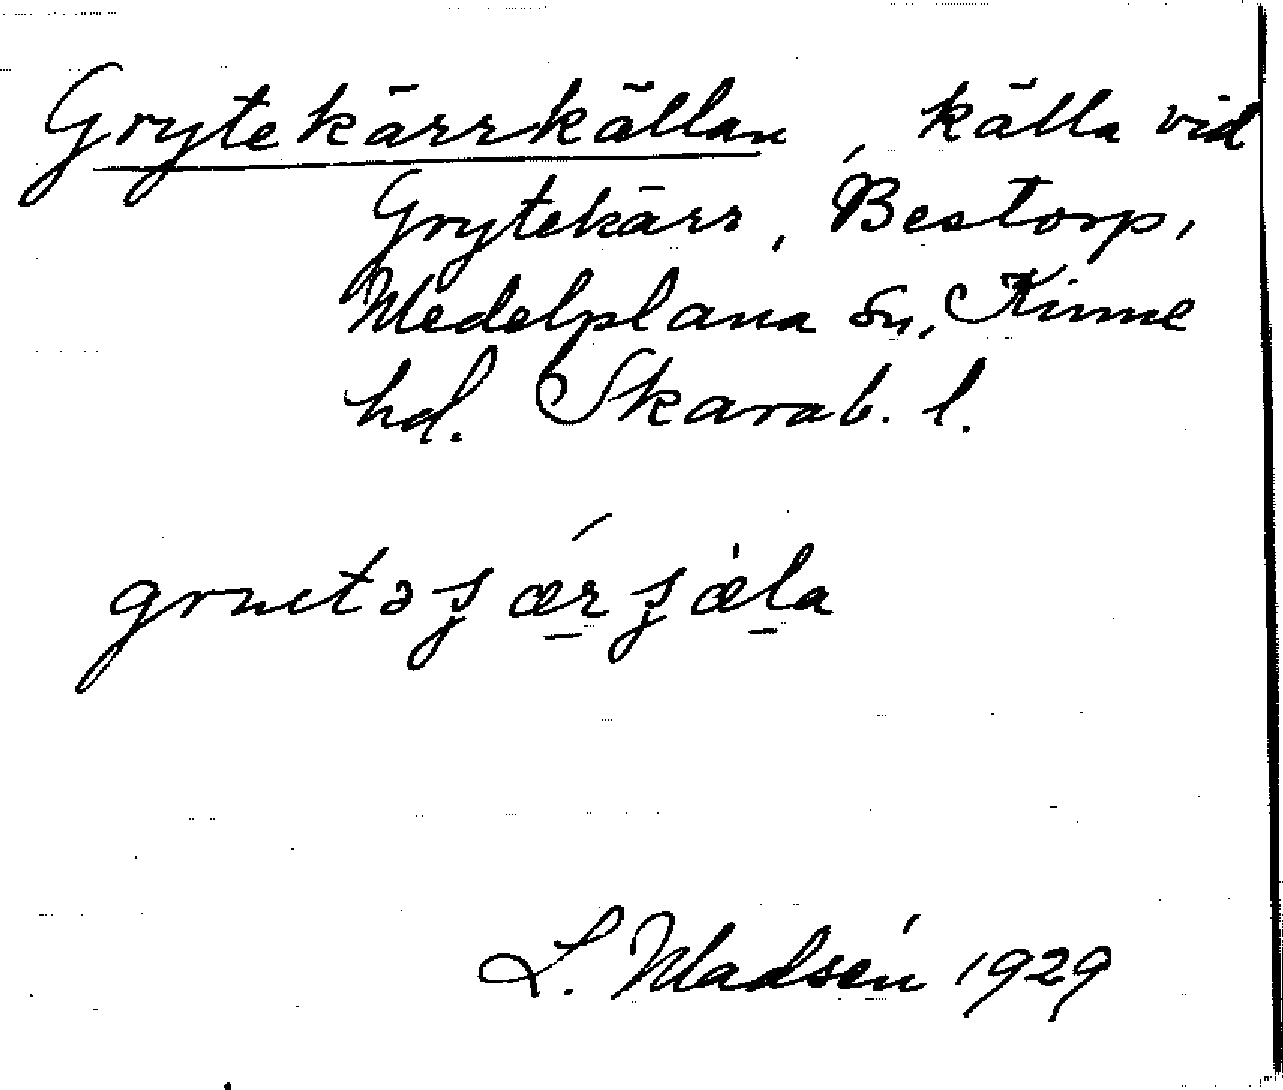 Grytekärrkällan, källa vid
Grytekärr, Bestorp,
Medelplana sn, Kinne
hd. Skarab. l.
L. Madsén 1929